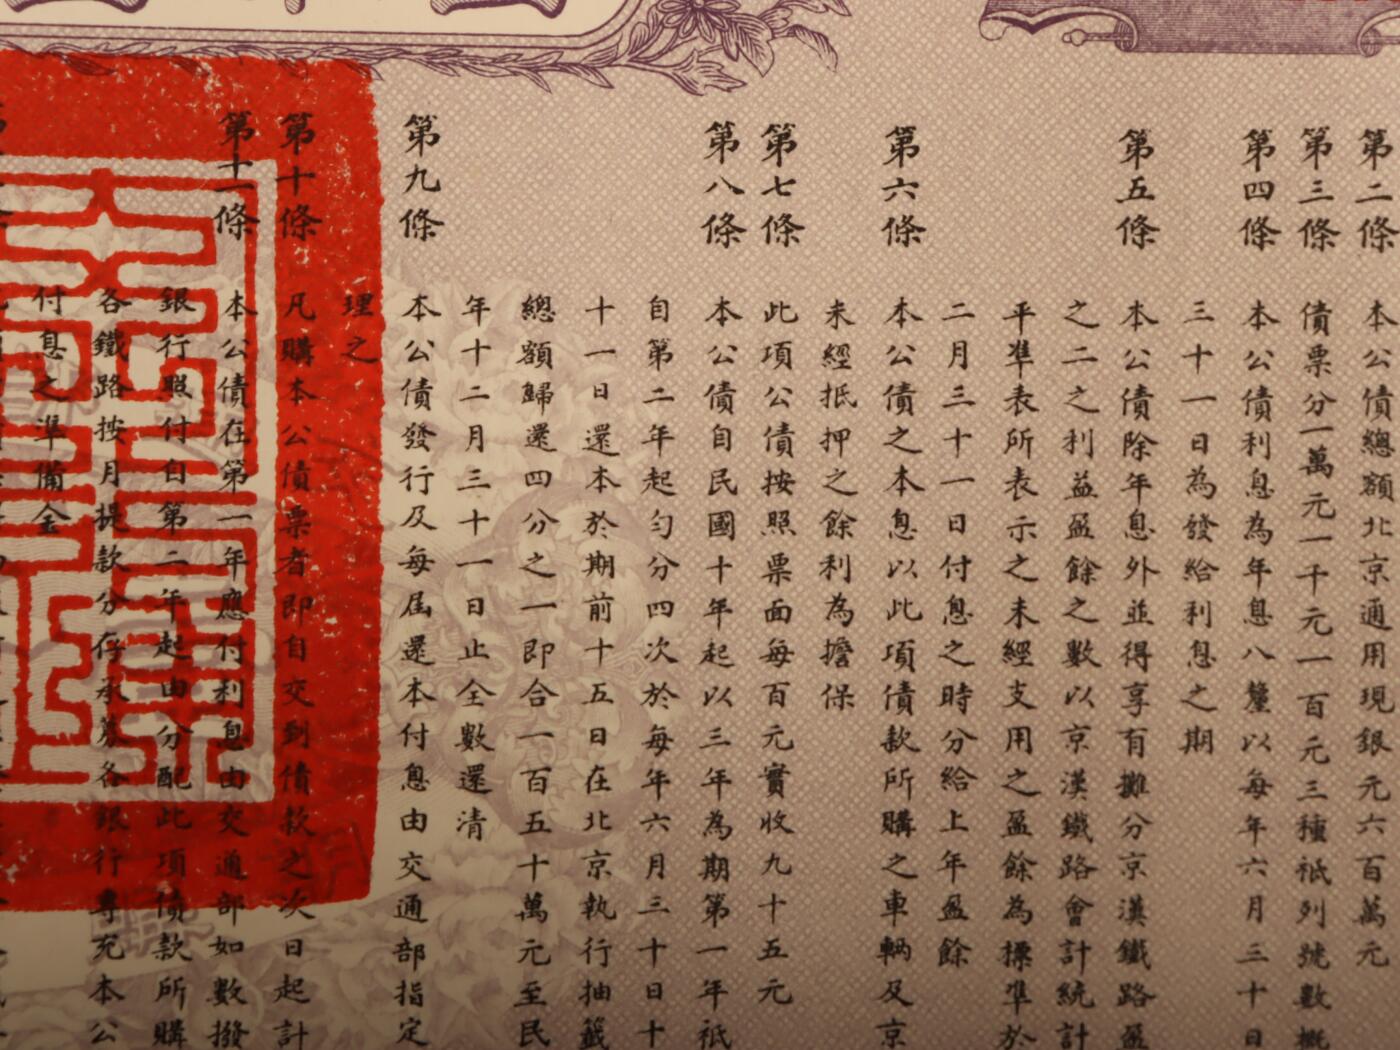 第二條 本公債總額北京通用現銀元六百萬元
第三條 債票分一萬元一千元一百元三種祇列號數概
第四條 本公債利息為年息八釐以每年六月三十日
三十一日為發給利息之期
第五條 本公債除年息外並得享有攤分京漢鐵路盈
之二之利益盈餘之數以京漢鐵路會計統計
平準表所表示之未經支用之盈餘為標準於
二月三十一日付息之時分給上年盈餘
第六條 本公債之本息以此項債款所購之車輛及京
未經抵押之餘利為擔保
第七條 此項公債按照票面每百元實收九十五元
第八條 本公債自民國十年起以三年為期第一年祇
自第二年起勻分四次於每年六月三十日十
十一日還本於期前十五日在北京執行抽籤
總額歸還四分之一即合一百五十萬元至民
年十二月三十一日止全數還清
第九條 本公債發行及每屆還本付息由交通部指定
理之
第十條 凡購本公債票者即自交到債款之次日起計
第十一條 本公債在第一年應付利息由交通部如數撥
銀行照付自第二年起由分配此項債款所購
各鐵路按月提款分存承募各銀行專充本公
付息之準備金